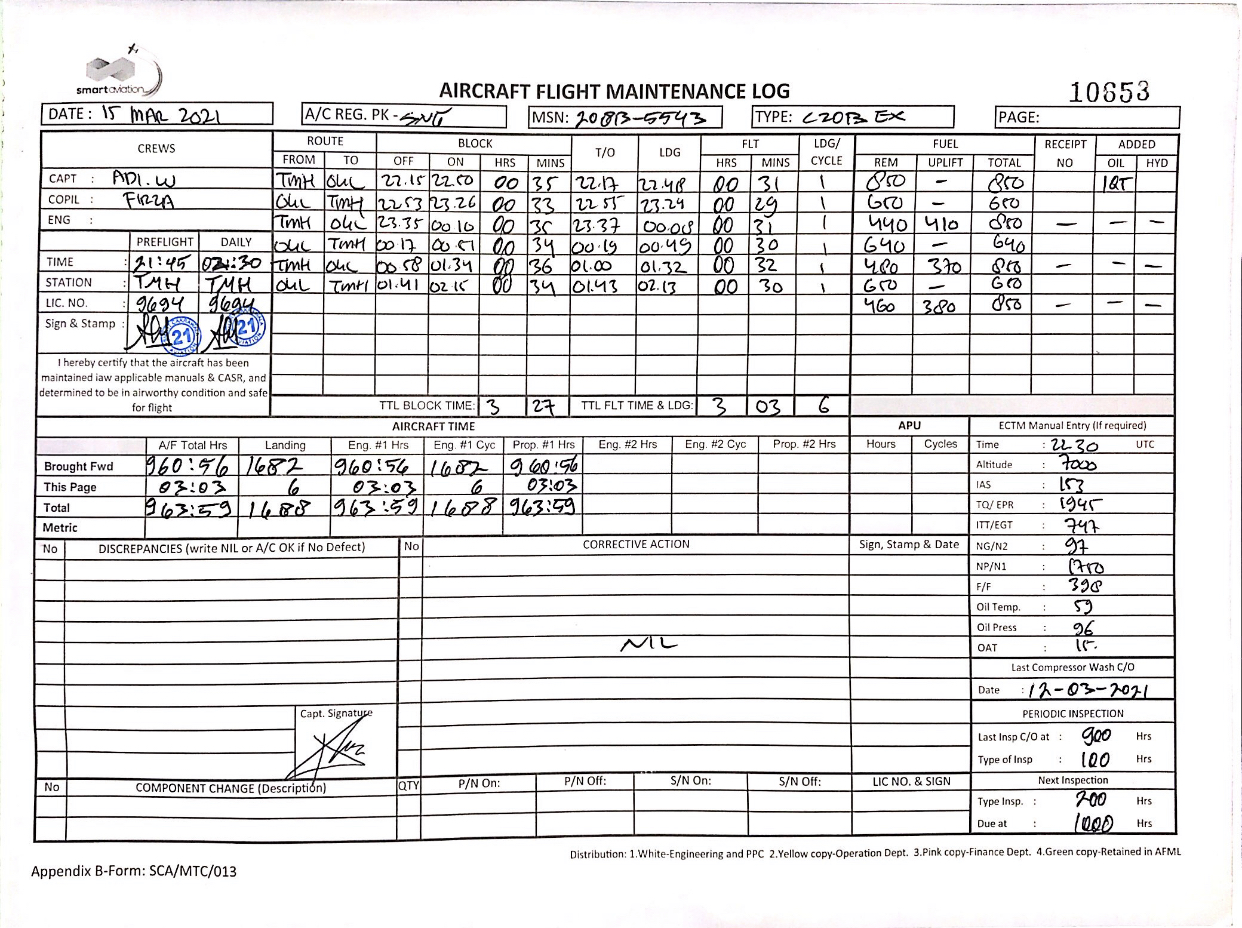 smartaviation
AIRCRAFT FLIGHT MAINTENANCE LOG
10653
DATE : 15 MAR 2021 A/C REG. PK - SNG MSN: 208B-5543 TYPE: C208B EX PAGE:
CREWS ROUTE BLOCK T/O LDG FLT LDG/ CYCLE FUEL RECEIPT NO ADDED
FROM TO OFF ON HRS MINS HRS MINS REM UPLIFT TOTAL OIL HYD
CAPT : ADI.W TMH OKL 22.15 22.50 00 35 22.17 22.48 00 31 1 850 - 850 1QT
COPIL : FIZZA OKL TMH 22.53 23.26 00 33 22.55 23.24 00 29 1 650 - 650
ENG : TMH OKL 23.35 00.10 00 35 23.37 00.08 00 31 1 440 410 850 - - -
PREFLIGHT DAILY OKL TMH 00.17 00.51 00 34 00.19 00.49 00 30 640 - 640
TIME : 21:45 02:30 TMH OKL 00.58 01.34 00 36 01.00 01.32 00 32 1 480 370 850 - - -
STATION : TMH TMH OKL TMH 01.41 02.15 00 34 01.43 02.13 00 30 1 650 - 650
LIC. NO. : 9694 9694 460 380 850 - - -
Sign & Stamp : 21 21
I hereby certify that the aircraft has been
maintained iaw applicable manuals & CASR, and
determined to be in airworthy condition and safe
for flight
TTL BLOCK TIME: 3 27 TTL FLT TIME & LDG: 3 03 6
AIRCRAFT TIME APU ECTM Manual Entry (If required)
A/F Total Hrs Landing Eng. #1 Hrs Eng. #1 Cyc Prop. #1 Hrs Eng. #2 Hrs Eng. #2 Cyc Prop. #2 Hrs Hours Cycles Time : 2230 UTC
Brought Fwd 960:56 1682 960:56 1682 960:56 Altitude : 7000
This Page 03:03 6 03:03 6 03:03 IAS : 153
Total 963:59 1688 963:59 1688 963:59 TQ/ EPR : 1945
Metric ITT/EGT : 747
No DISCREPANCIES (write NIL or A/C OK if No Defect) No CORRECTIVE ACTION Sign, Stamp & Date NG/N2 : 97
NP/N1 : 1750
F/F : 398
Oil Temp. : 59
Oil Press : 96
NIL OAT : 15.
Last Compressor Wash C/O
Date : 12-03-2021
Capt. Signature PERIODIC INSPECTION
Last Insp C/O at : 900 Hrs
Type of Insp : 100 Hrs
No COMPONENT CHANGE (Description) QTY P/N On: P/N Off: S/N On: S/N Off: LIC NO. & SIGN Next Inspection
Type Insp. : 200 Hrs
Due at : 1000 Hrs
Distribution: 1.White-Engineering and PPC 2.Yellow copy-Operation Dept. 3.Pink copy-Finance Dept. 4.Green copy-Retained in AFML
Appendix B-Form: SCA/MTC/013